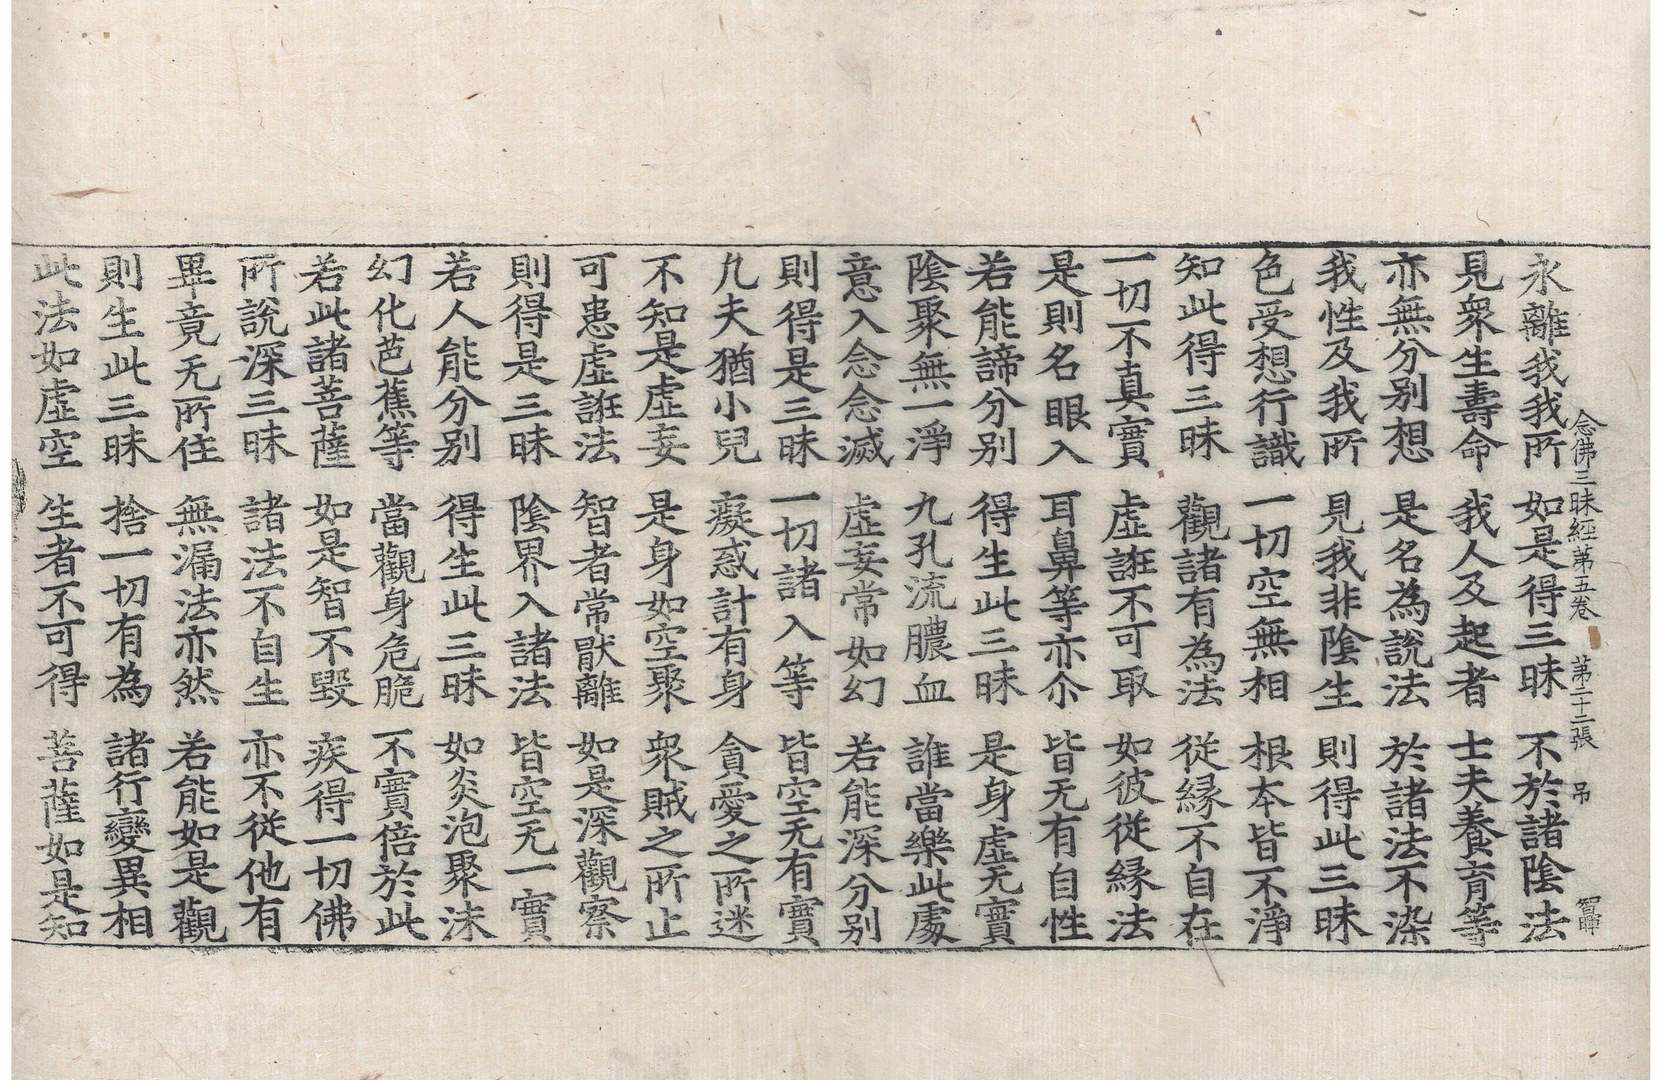 念佛三昧經第五卷 第二十二張 吊
永離我我所 如是得三昧 不於諸陰法
見衆生壽命 我人及起者 士夫養育等
亦無分別想 是名為說法 於諸法不染
我性及我所 見我非陰生 則得此三昧
色受想行識 一切空無相 根本皆不淨
知此得三昧 觀諸有為法 從緣不自在
一切不真實 虛誑不可取 如彼從緣法
是則名眼入 耳鼻等亦尒 皆无有自性
若能諦分別 得生此三昧 是身虛无實
陰聚無一淨 九孔流膿血 誰當樂此處
意入念念滅 虛妄常如幻 若能深分別
則得是三昧 一切諸入等 皆空无有實
凡夫猶小兒 癡惑計有身 貪愛之所迷
不知是虛妄 是身如空聚 衆賊之所止
可患虛誑法 智者常猒離 如是深觀察
則得是三昧 陰界入諸法 皆空无一實
若人能分別 得生此三昧 如炎泡聚沫
幻化芭蕉等 當觀身危脆 不實倍於此
若此諸菩薩 如是智不毀 疾得一切佛
所說深三昧 諸法不自生 亦不從他有
畢竟无所住 無漏法亦然 若能如是觀
則生此三昧 捨一切有為 諸行變異相
此法如虛空 生者不可得 菩薩如是知